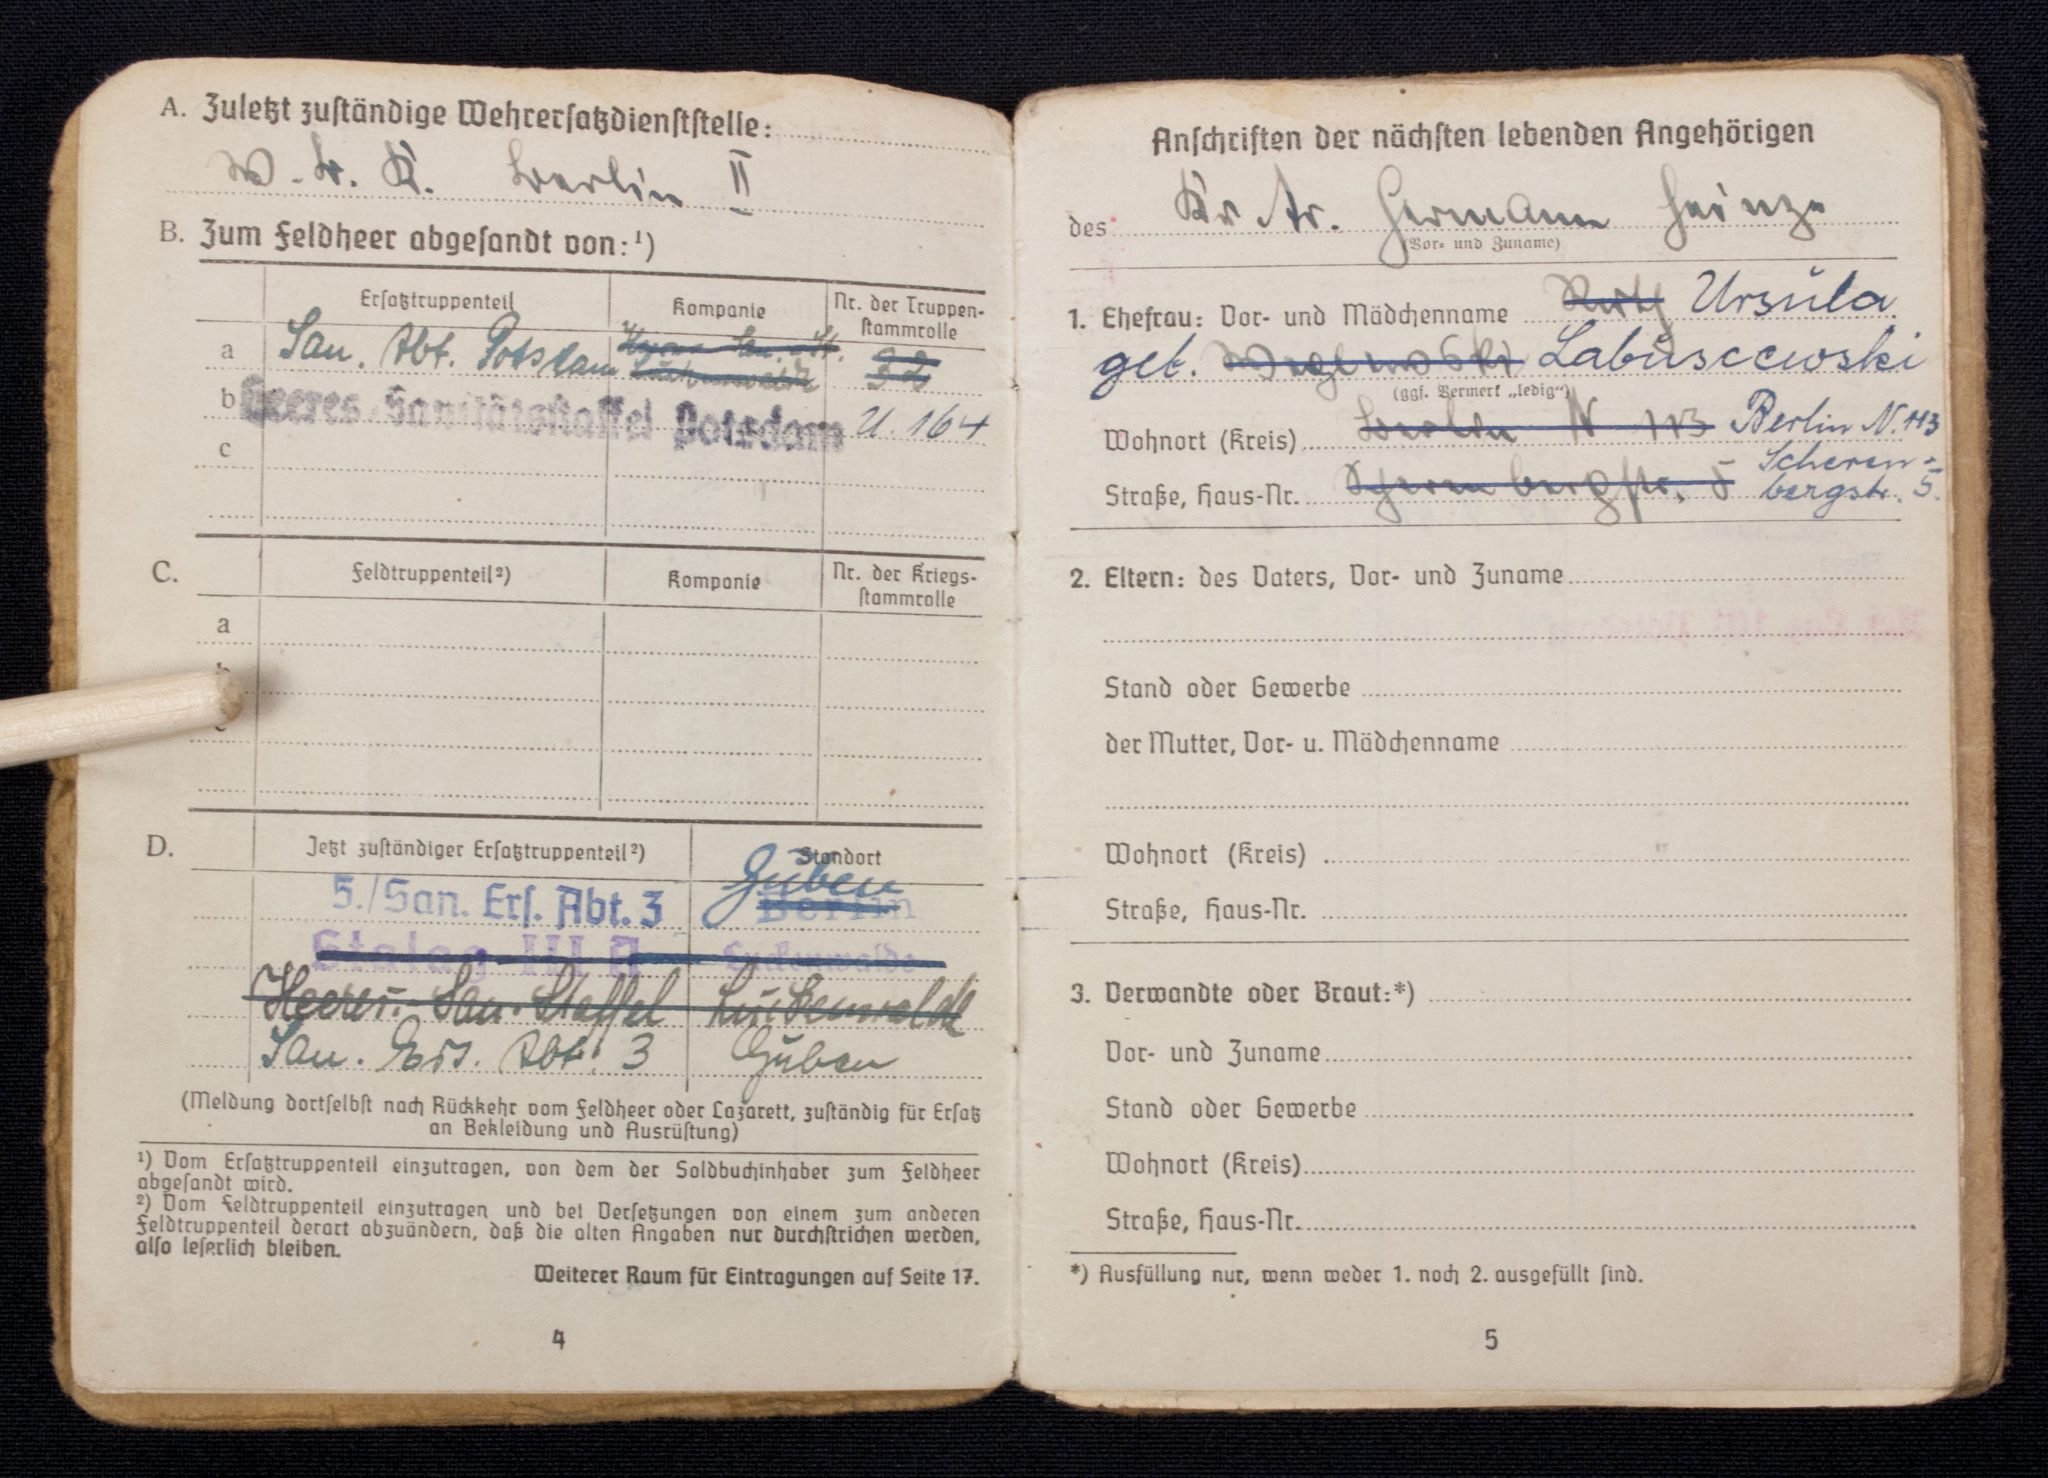 A. Zuletzt zuständige Wehrersatzdienststelle:
W. B. K. Berlin II
B. Zum Feldheer abgesandt von:¹)
Ersatztruppenteil Kompanie Nr. der Truppen-
stammrolle
a San. Abt. Potsdam Luckenwalde 32
b Heeres-Sanitätsstaffel Potsdam U. 164
c
C. Feldtruppenteil²) Kompanie Nr. der Kriegs-
stammrolle
a
b
c
D. Jetzt zuständiger Ersatztruppenteil²) Standort
Guben
5./San. Ers. Abt. 3 Berlin
Stalag III A Luckenwalde
Heeres-San. Staffel Luckenwalde
San. Ers. Abt. 3 Guben
(Meldung dortselbst nach Rückkehr vom Feldheer oder Lazarett, zuständig für Ersatz
an Bekleidung und Ausrüstung)
¹) Vom Ersatztruppenteil einzutragen, von dem der Soldbuchinhaber zum Feldheer
abgesandt wird.
²) Vom Feldtruppenteil einzutragen und bei Versetzungen von einem zum anderen
Feldtruppenteil derart abzuändern, daß die alten Angaben nur durchstrichen werden,
also leserlich bleiben.
Weiterer Raum für Eintragungen auf Seite 17.
4
Anschriften der nächsten lebenden Angehörigen
des Hermann Heinze
(Vor- und Zuname)
1. Ehefrau: Vor- und Mädchenname Ruth Ursula
geb. Labusccewski
(ggf. Vermerk „ledig“)
Wohnort (Kreis) Berlin N 113 Berlin N. 113
Scheren-
Straße, Haus-Nr. Scherenbergstr. 5 bergstr. 5.
2. Eltern: des Vaters, Vor- und Zuname
Stand oder Gewerbe
der Mutter, Vor- u. Mädchenname
Wohnort (Kreis)
Straße, Haus-Nr.
3. Verwandte oder Braut:*)
Vor- und Zuname
Stand oder Gewerbe
Wohnort (Kreis)
Straße, Haus-Nr.
*) Ausfüllung nur, wenn weder 1. noch 2. ausgefüllt sind.
5